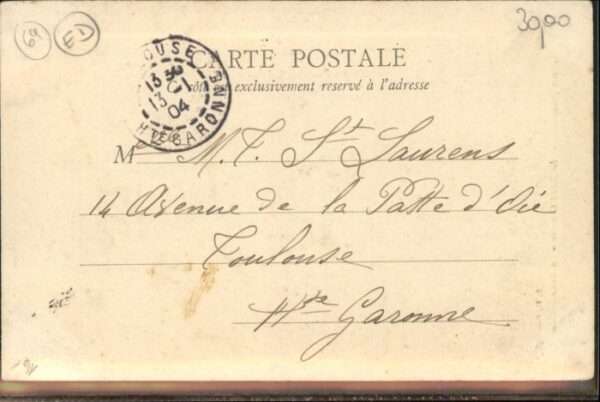 64
ED
30,00
CARTE POSTALE
exclusivement reservé à l'adresse
OUSE
13
13
04
GARONNE
M M. T. St Laurens
14 Avenue de la Patte d'Oie
Toulouse
Hte Garonne